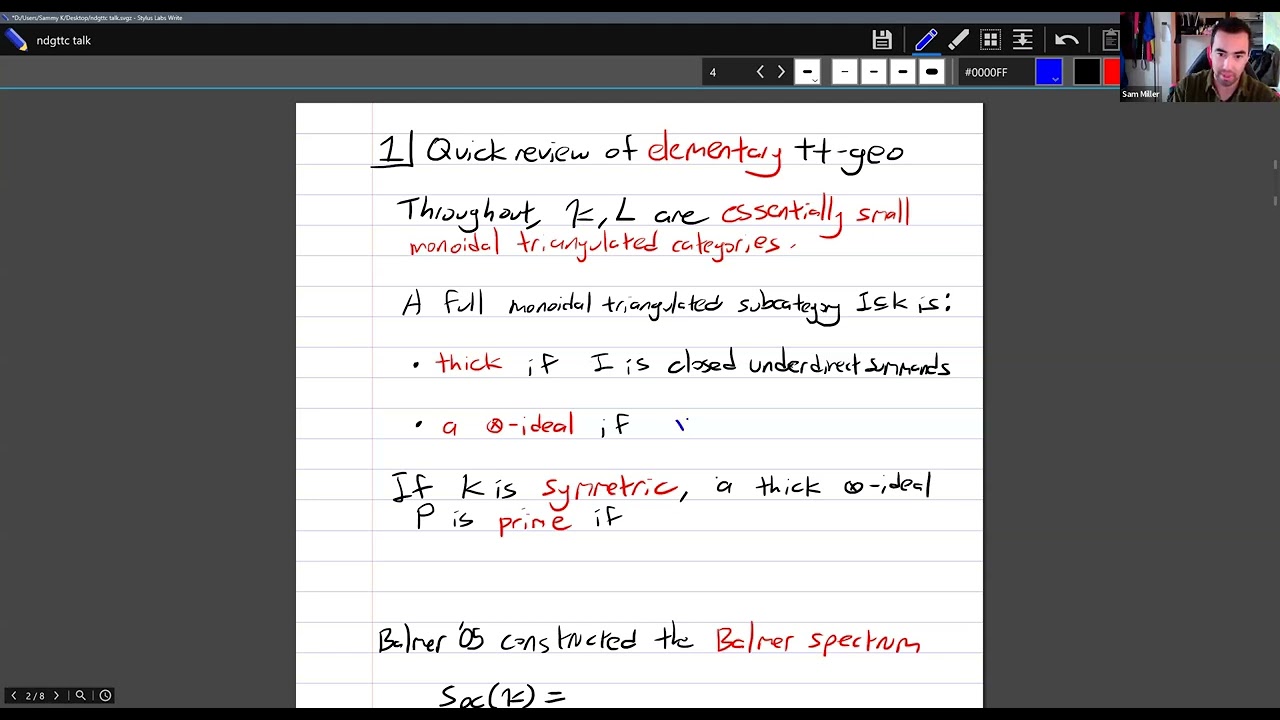 *D:/Users/Sammy K/Desktop/ndgttc talk.svgz - Stylus Labs Write
ndgttc talk
4
#0000FF
Sam Miller
1 Quick review of elementary tt-geo
Throughout, K, L are essentially small
monoidal triangulated categories.
A full monoidal triangulated subcategory I ⊆ K is:
• thick if I is closed under direct summands
• a ⊗-ideal if
If K is symmetric, a thick ⊗-ideal
P is prime if
Balmer '05 constructed the Balmer spectrum
Spc(K) =
2/8